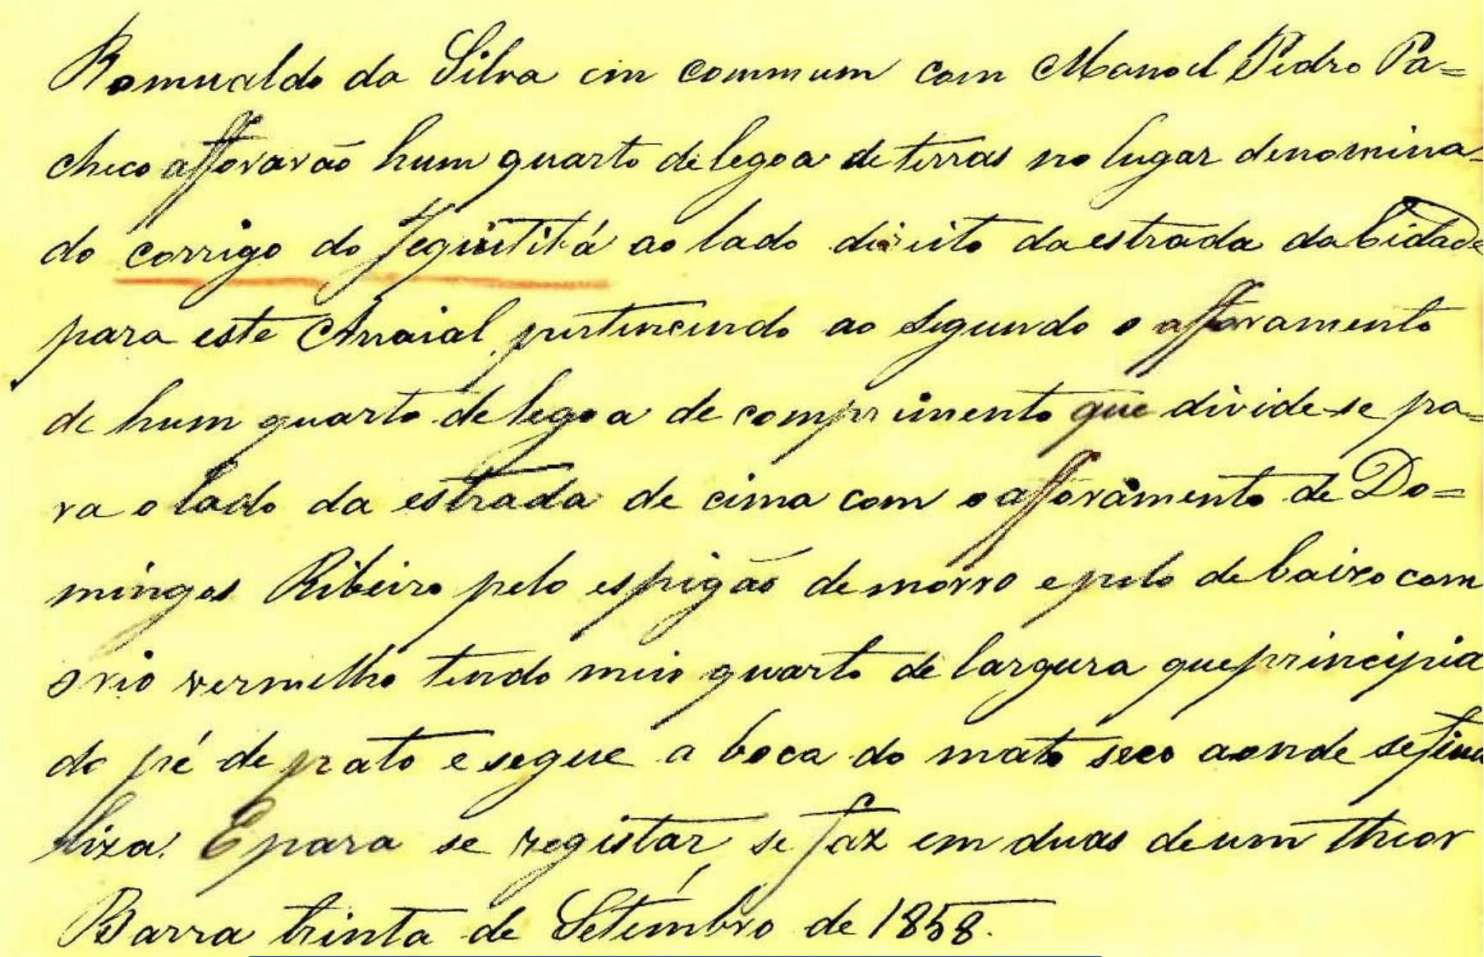 Romualdo da Silva em commum com Manoel Pedro Pa=
checo afforarão hum quarto de legoa de terras no lugar denomina=
do corrigo do Jequitibá ao lado direito da estrada da Cidade
para este Arraial pertencendo ao segundo o afforamento
de hum quarto de legoa de comprimento que divide-se pa=
ra o lado da estrada de cima com o afforamento de Do=
mingos Ribeiro pelo espigão de morro e pelo de baixo com
o rio vermelho tendo meio quarto de largura que principia
do pé de prato e segue a boca do mato seco aonde se fina
liza. E para se registar se faz em duas de um theor
Barra trinta de Setembro de 1858.